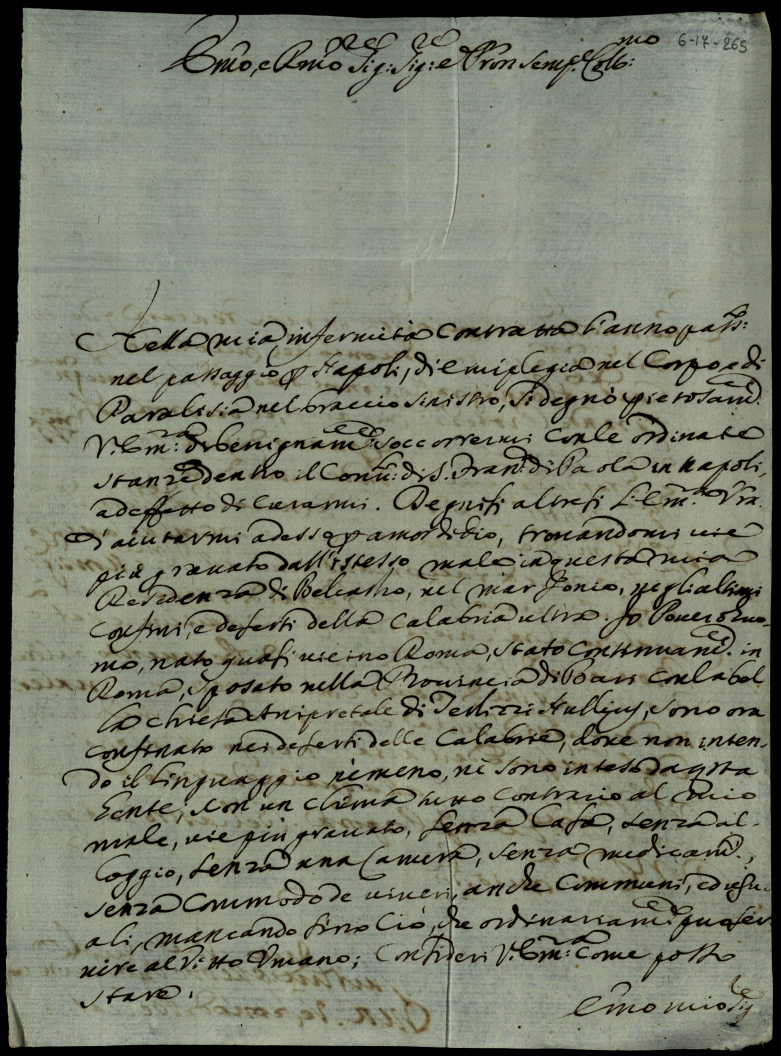 6-17-265
Emo, e Rmo Sig: Sig: e Pron semp: Colt:mo
Nella mia infermità Contratta l'anno pass:
nel passaggio p Napoli, di emiplegia nel Corpo, e di
Paralisia nel braccio sinistro, si degnò pietosam:
V: Em: di benignam: soccorrermi con le ordinate
stanze dentro il Conv: di S. Fran: di Paola in Napoli,
ad effetto di curarmi. Degnisi altresi l'Em: Vra
d'aiutarmi adesso p amor di Dio, trovandomi vie
più gravato dall'istesso male in questa mia
Residenza di Belcastro, nel mar Jonio, negli ultimi
confini, e deserti della Calabria ultra. Io Povero huo-
mo, nato quasi vicino Roma, stato continuam: in
Roma, sposato nella Provincia di Bari con la bel-
la chiesa Arcipretale di Terlizzi Nullius, sono ora
confinato nei deserti delle Calabrie, dove non inten-
do il linguaggio nemeno, nè sono inteso da qsta
Gente, con un clima tutto contrario al mio
male, vie più gravato, senza Casa, senza al-
loggio, senza una Camera, senza medicam:,
senza commodo de viveri, anche communi, ed usu-
ali, mancando sino ciò, che ordinariam: può ser-
vire al vitto umano; Consideri V: Em: come posso
stare.
Emo mio Sig